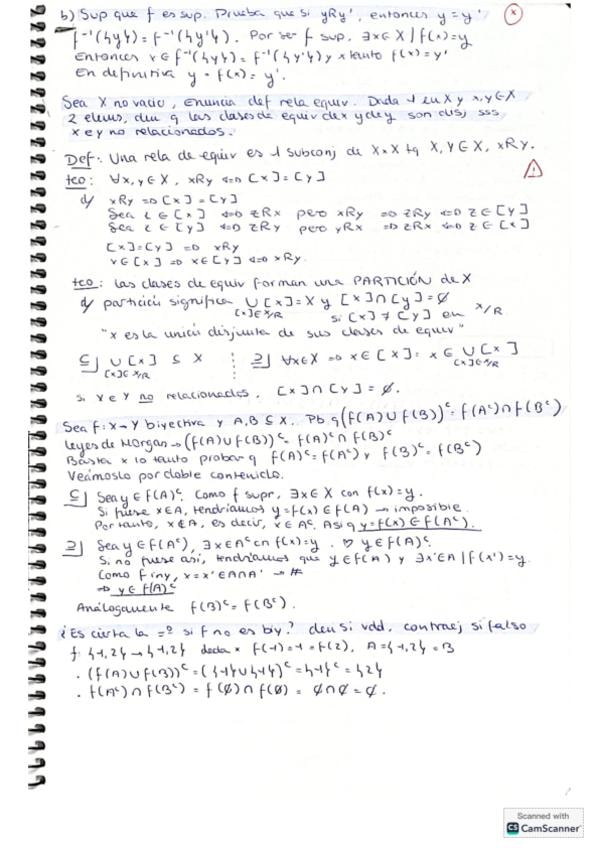 b) Sup que f es sup. Prueba que si yRy', entonces y=y'
f⁻¹({y}) = f⁻¹({y'}). Por ser f sup, ∃x∈X | f(x)=y
Entonces x∈f⁻¹({y}) = f⁻¹({y'}) y x tanto f(x)=y'
En definitiva y = f(x) = y'.
Sea X no vacío, enuncia def rela equiv. Dada 1 en X y x,y∈X
2 elems, dem q las clases de equiv de x y de y son disj sss
x e y no relacionados.
Def: Una rela de equiv es 1 subconj de X×X tq X,Y∈X, xRy.
teo: ∀x,y∈X, xRy ⇔ [x]=[y]
d/ xRy ⇒ [x]=[y]
Sea z∈[x] ⇔ zRx pero xRy ⇒ zRy ⇔ z∈[y]
Sea z∈[y] ⇔ zRy pero yRx ⇒ zRx ⇔ z∈[x]
[x]=[y] ⇒ xRy
x∈[x] ⇒ x∈[y] ⇔ xRy.
teo: las clases de equiv forman una PARTICIÓN de X
d/ partición significa ∪[x]=X y [x]∩[y]=∅
[x]∈X/R si [x]≠[y] en X/R
"x es la unión disjunta de sus clases de equiv"
⊆] ∪[x] ⊆ X ⊇] ∀x∈X ⇒ x∈[x]: x∈∪[x]
[x]∈X/R [x]∈X/R
si x e y no relacionados, [x]∩[y]=∅.
Sea f: X→Y biyectiva y A,B⊆X. Pb q (f(A)∪f(B))ᶜ=f(Aᶜ)∩f(Bᶜ)
Leyes de Morgan → (f(A)∪f(B))ᶜ=f(A)ᶜ∩f(B)ᶜ
Basta x lo tanto probar q f(A)ᶜ=f(Aᶜ) y f(B)ᶜ=f(Bᶜ)
Veámoslo por doble contenido.
⊆] Sea y∈f(A)ᶜ. Como f supr, ∃x∈X con f(x)=y.
Si fuese x∈A, tendríamos y=f(x)∈f(A) → imposible.
Por tanto, x∉A, es decir, x∈Aᶜ. Así q y=f(x)∈f(Aᶜ).
⊇] Sea y∈f(Aᶜ), ∃x∈Aᶜ cn f(x)=y. y∈f(A)ᶜ.
Si no fuese así, tendríamos que y∈f(A) y ∃x'∈A | f(x')=y.
Como f iny, x=x'∈A∩Aᶜ → #
⇒ y∈f(A)ᶜ
Análogamente f(B)ᶜ=f(Bᶜ).
¿Es cierta la = si f no es biy? dem si vdd, contraej si falso
f: {1,2}→{1,2} dada x f(1)=1=f(2), A={1,2}=B
· (f(A)∪f(B))ᶜ=({1}∪{1})ᶜ={1}ᶜ={2}
· f(Aᶜ)∩f(Bᶜ)=f(∅)∩f(∅)=∅∩∅=∅.
Scanned with
CS CamScanner